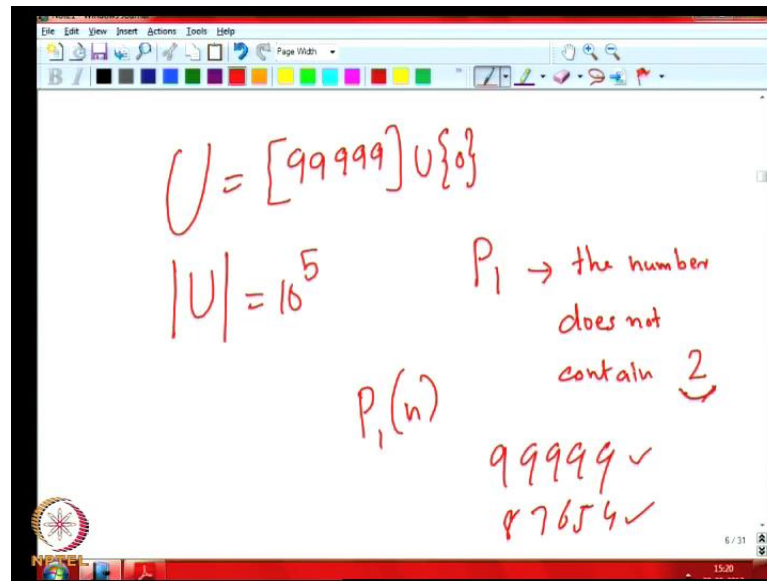 File Edit View Insert Actions Tools Help
Page Width
B I
U = [99999] U {0}
|U| = 10^5
P1 → the number
does not
contain 2
P1(n)
99999 ✓
87654 ✓
6 / 31
NPTEL
15:20